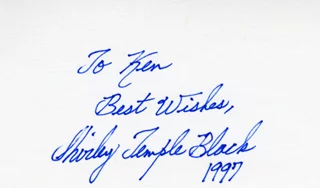 To Ken
Best Wishes,
Shirley Temple Black
1997